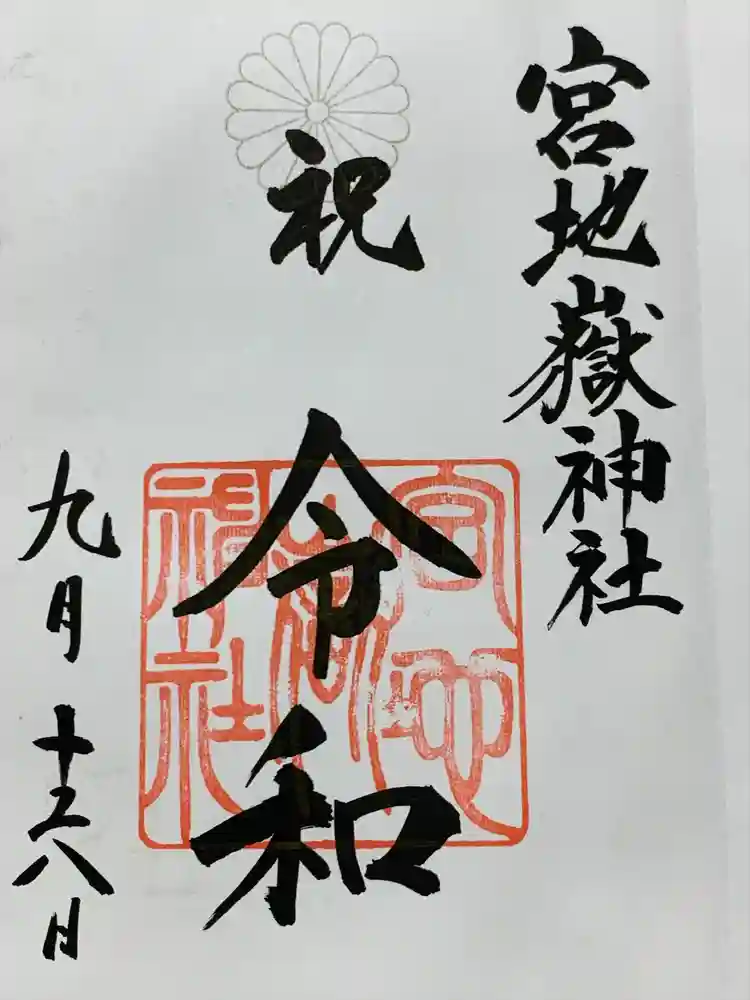 宮地嶽神社
祝
令和
九月十六日
宮地
嶽
神社